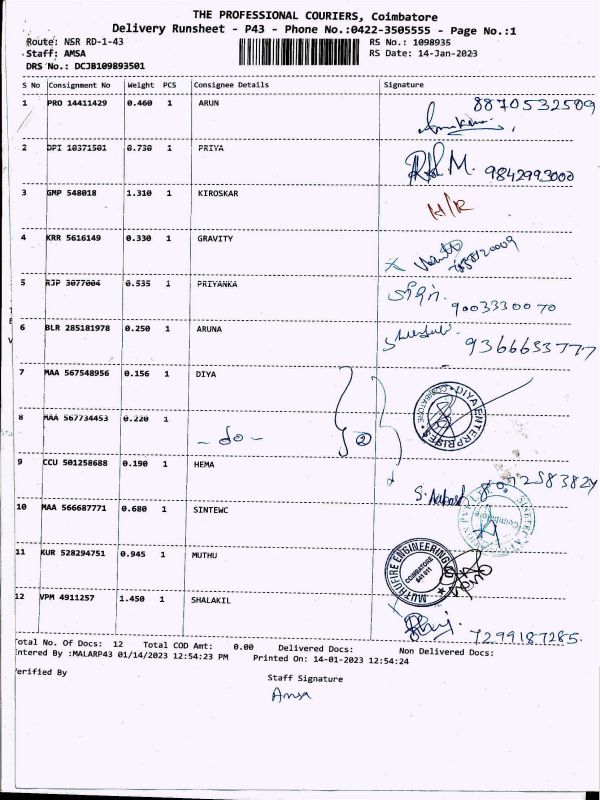 THE PROFESSIONAL COURIERS, Coimbatore
Delivery Runsheet - P43 - Phone No.:0422-3505555 - Page No.:1
Route: NSR RD-1-43 RS No.: 1098935
Staff: AMSA RS Date: 14-Jan-2023
DRS No.: DCJB109893501
S No Consignment No Weight PCS Consignee Details Signature
1 PRO 14411429 0.460 1 ARUN 8870532509
2 DPI 10371501 0.730 1 PRIYA M. 9842993000
3 GMP 548018 1.310 1 KIROSKAR H/R
4 KRR 5616149 0.330 1 GRAVITY
5 RJP 3077004 0.535 1 PRIYANKA 9003330070
6 BLR 285181978 0.250 1 ARUNA 9366633777
7 MAA 567548956 0.156 1 DIYA DIYA ENTERPRISES COIMBATORE
8 MAA 567734453 0.220 1 - do - 2
9 CCU 501258688 0.190 1 HEMA
10 MAA 566687771 0.680 1 SINTEWC Coimbatore
11 KUR 528294751 0.945 1 MUTHU MUTHUFIRE ENGINEERING COIMBATORE 641 011
12 VPM 4911257 1.450 1 SHALAKIL 7299187285.
Total No. Of Docs: 12 Total COD Amt: 0.00 Delivered Docs: Non Delivered Docs:
ntered By :MALARP43 01/14/2023 12:54:23 PM Printed On: 14-01-2023 12:54:24
erified By Staff Signature
Amsa